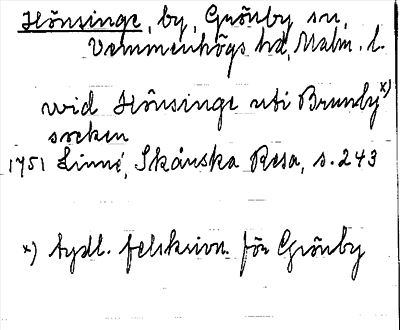 Hönsinge, by, Grönby sn,
Vemmenhögs hd, Malm. l.
wid Hönsinge uti Brunby x)
socken
1751 Linné, Skånska Resa, s. 243
x) tydl. felskrivn. för Grönby